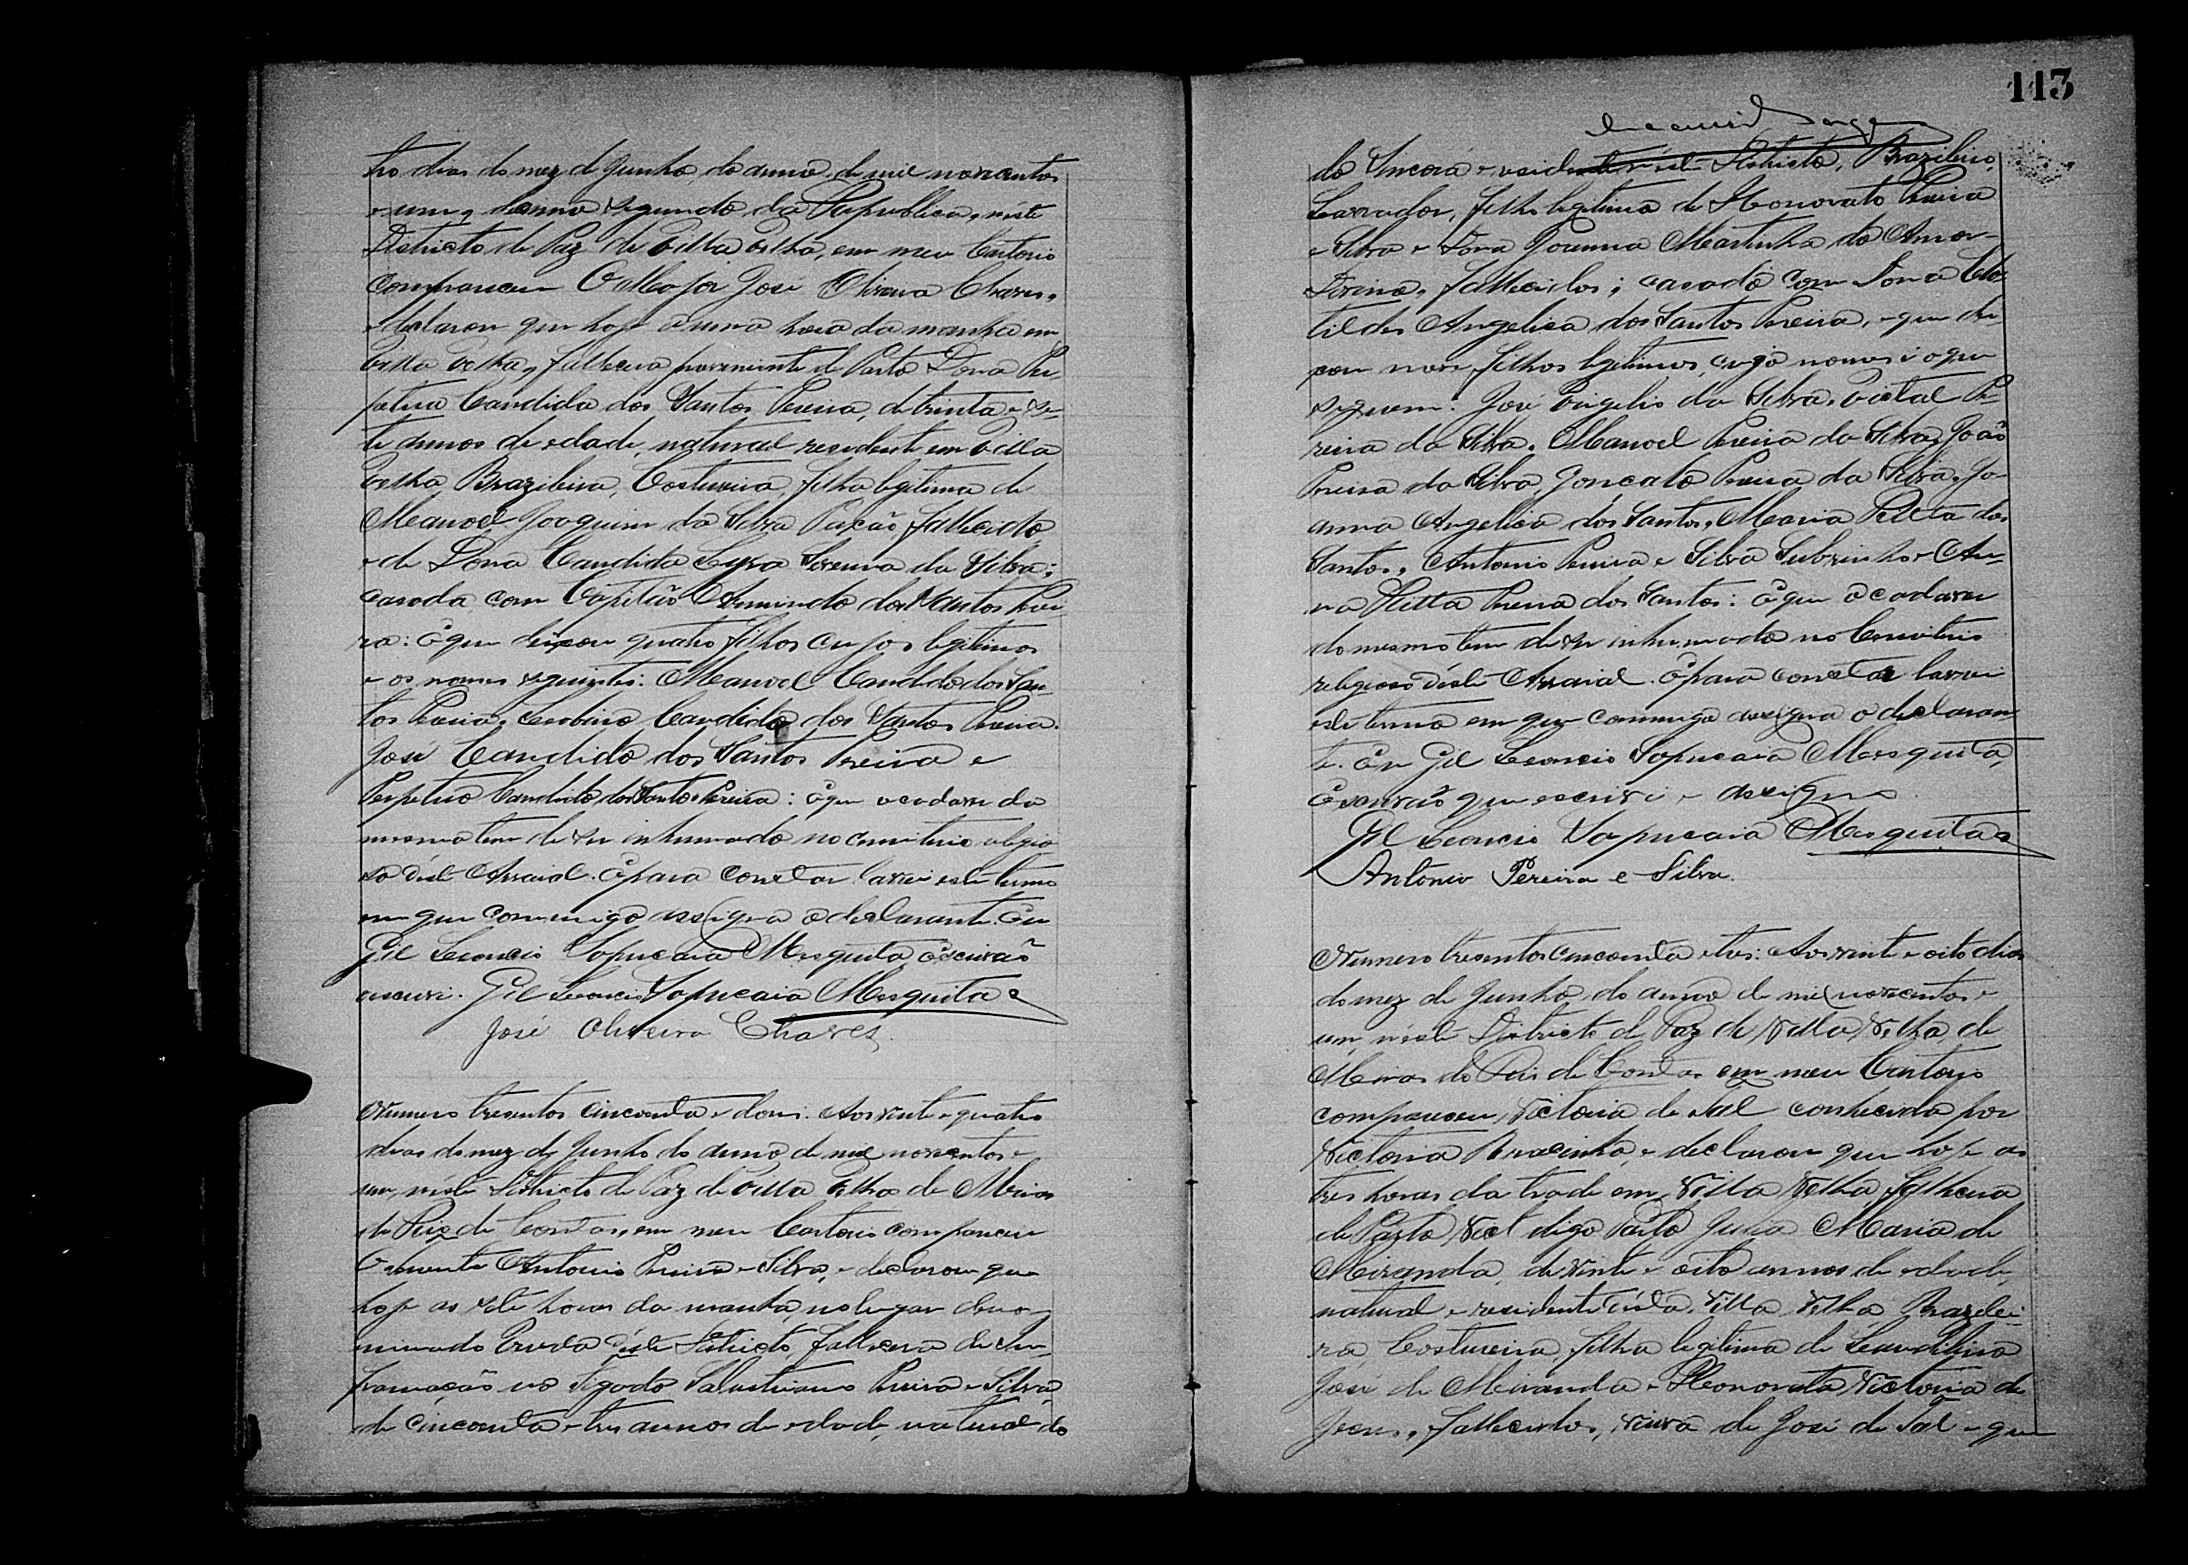 tro dias do mez de Junho, do anno de mil novecentos
e um, decimo segundo da Republica, néste
Districto de Paz de Villa Velha, em meu Cartorio
compareceu O Major José Oliveira Chaves,
e declarou que hoje a uma hora da manhã em
Villa Velha, fallecera proveniente de Parto Dona Per-
petua Candida dos Santos Pereira, de trinta e se-
te annos de edade, natural residente em Villa
Velha Brazileira, Costureira, filha legitima de
Manoel Joaquim da Silva Paixão, fallecido
e de Dona Candida da Silva;
casada com Capitão dos Santos Perei-
ra: e que deixou quatro filhos cujos legitimos
e os nomes seguintes: Manoel Candido dos San-
tos Pereira, Candido dos Santos Pereira.
José Candido dos Santos Pereira e
Perpetua Candida dos Santos Pereira: e que o cadaver da
mesma tem de ser inhumado no cemiterio religio-
so déste Arraial. E para constar lavrei este termo
em que commigo assigna o declarante. Eu
Gil Leoncio Sapucaia Mesquita, escrivão
escrevi. Gil Leoncio Sapucaia Mesquita
José Oliveira Chaves
Numero tresentos cincoenta e dous: Aos vinte e quatro
dias do mez de Junho do anno de mil novecentos e
um, néste Districto de Paz de Villa Velha de Minas
do Rio de Contas, em meu Cartorio compareceu
O Antonio Pereira e Silva, e declarou que
hoje as sete horas da manhã, no lugar deno-
minado déste Districto, fallecera de In-
flamação no Figado Salustiano Pereira e Silva
de cincoenta e tres annos de edade, natural do
113
do Sincorá e residente néste Districto, Brazileiro,
Lavrador, filho legitimo de Honorato Pereira
e Silva e Dona Joanna Martinha do Amor-
Divino, fallecidos; casado com Dona Clo-
tildes Angelica dos Santos Pereira, e que dei-
xou nove filhos legitimos, cujo nomes é o que
seguem: José Virgilio da Silva, Vital Pe-
reira da Silva, Manoel Pereira da Silva, João
Pereira da Silva, Goncalo Pereira da Silva, Jo-
anna Angelica dos Santos, Maria Ritta dos
Santos, Antonio Pereira e Silva Subrinho e An-
na Ritta Pereira dos Santos: e que o cadaver
do mesmo tem de ser inhumado no Cemiterio
religioso déste Arraial. E para constar lavrei
este termo em que commigo assigna o declaran-
te. Eu Gil Leoncio Sapucaia Mesquita,
Escrivão que escrevi e assigno.
Gil Leoncio Sapucaia Mesquita
Antonio Pereira e Silva.
Numero tresentos cincoenta e tres: Aos vinte e oito dias
do mez de Junho, do anno de mil novecentos e
um, néste Districto de Paz de Villa Velha, de
Minas do Rio de Contas em meu Cartorio
compareceu, Victoria de Tal conhecida por
Victoria, e declarou que hoje as
tres horas da tarde em Villa Velha, fallecera
de Parto, Vict digo Parto, Julia Maria de
Miranda, de vinte e oito annos de edade,
natural e residente nésta Villa Velha, Brazilei-
ra, Costureira, filha legitima de
José de Miranda e Honorata Victoria de
Jesus, fallecidos, viuva de José de Tal e que